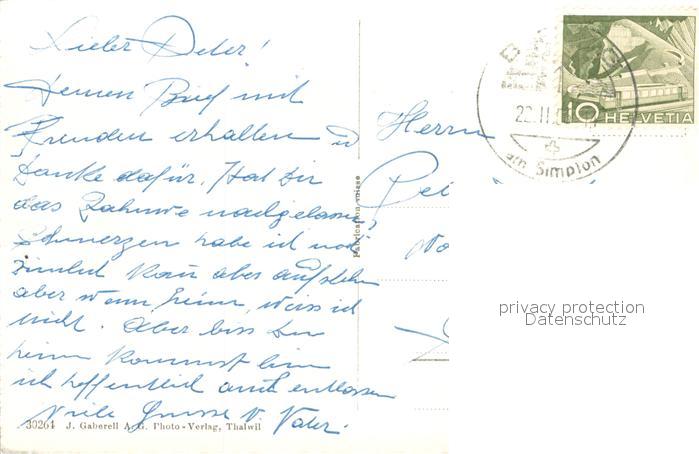 Lieber Peter!
Deinen Brief mit
Freuden erhalten u
Danke dafür. Hat Dir
das Zahnwe nachgelassen?
Schmerzen habe ich noch
zimlich kann aber aufstehen
aber wann heim, weiss ich
nicht. Aber biss Du
heim kommst bin
ich hoffentlich auch entlassen
Viele Grüsse v. Vater.
30264 J. Gaberell A. G. Photo-Verlag, Thalwil
Fabrication suisse
Herrn
Pet
10 HELVETIA
22.II.
am Simplon
privacy protection
Datenschutz